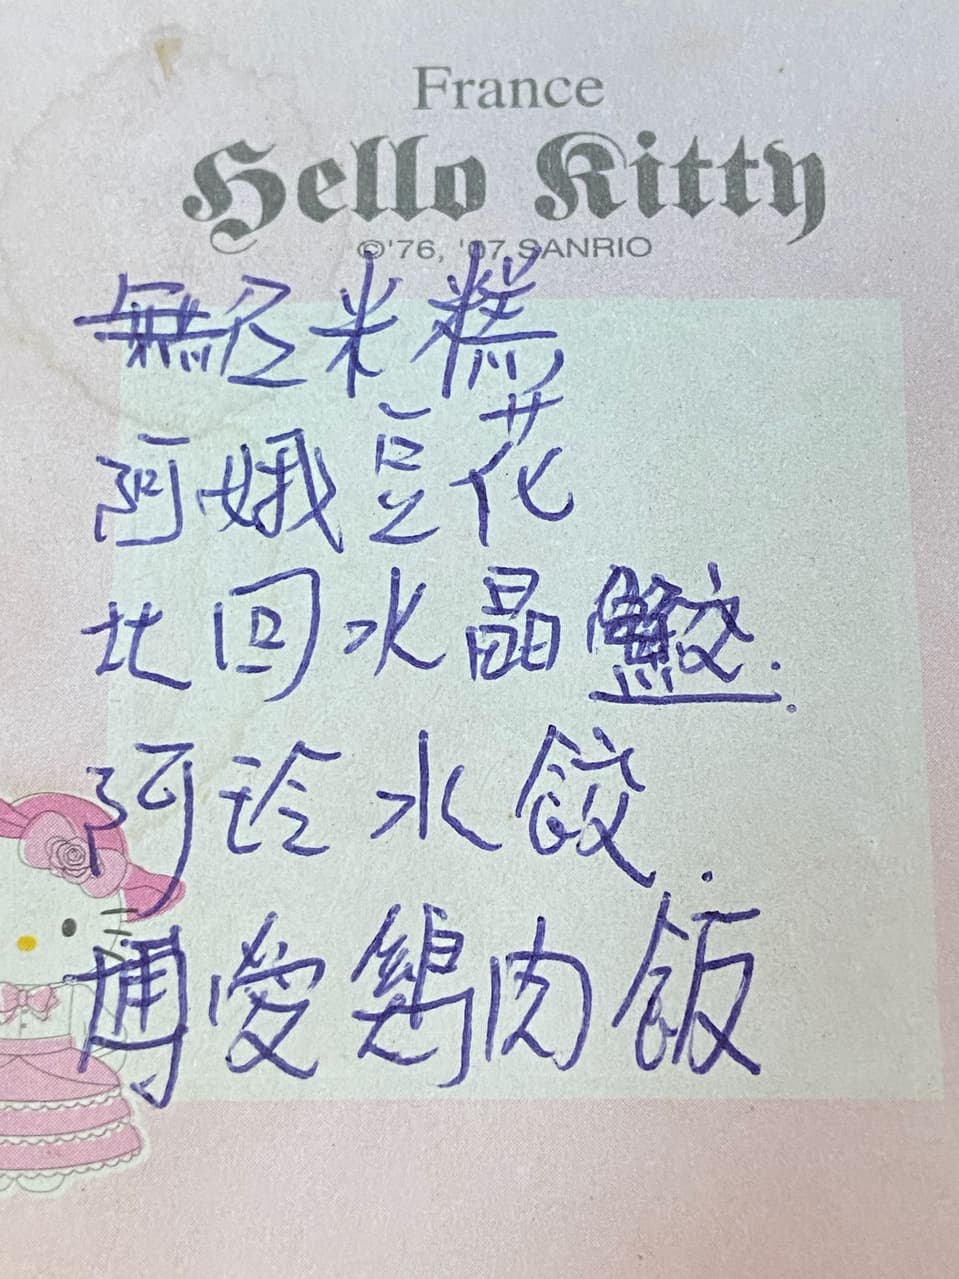 France
Hello Kitty
©'76, '07 SANRIO
無名米糕
阿娥豆花
北回水晶鮫.
阿玲水餃.
博愛鷄肉飯